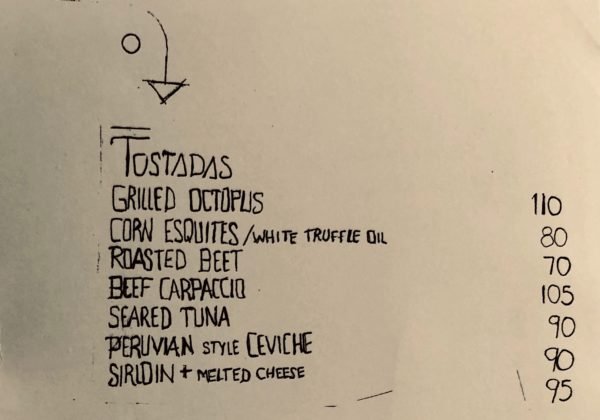 TOSTADAS
GRILLED OCTOPUS 110
CORN ESQUITES /WHITE TRUFFLE OIL 80
ROASTED BEET 70
BEEF CARPACCIO 105
SEARED TUNA 90
PERUVIAN STYLE CEVICHE 90
SIRLOIN + MELTED CHEESE 95